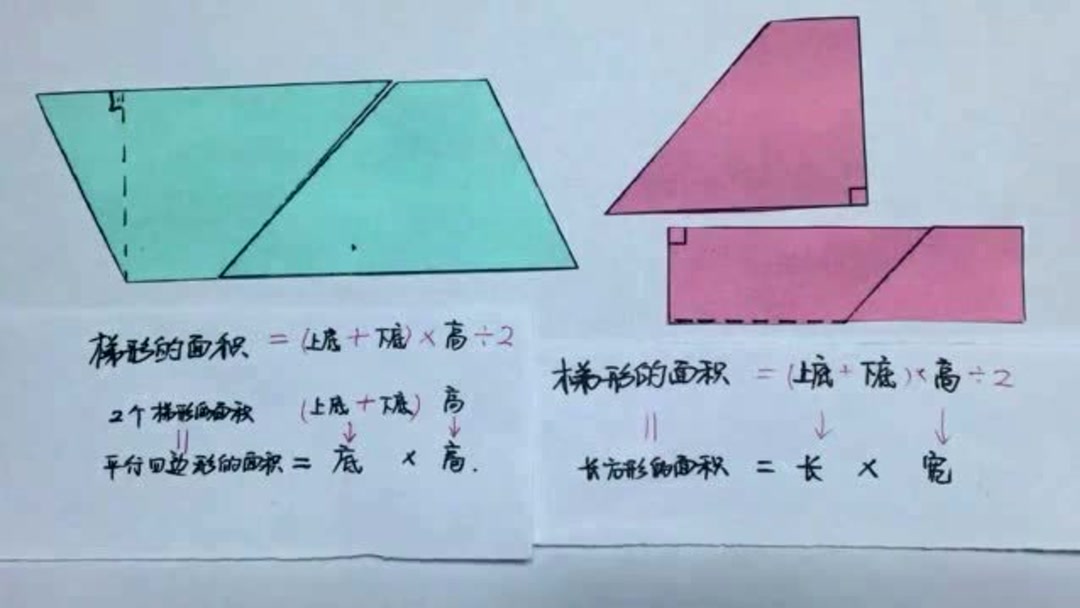 梯形的面积 =(上底+下底)×高÷2
2个梯形的面积 (上底+下底) 高
平行四边形的面积 = 底 × 高.
梯形的面积 =(上底+下底)×高÷2
长方形的面积 = 长 × 宽